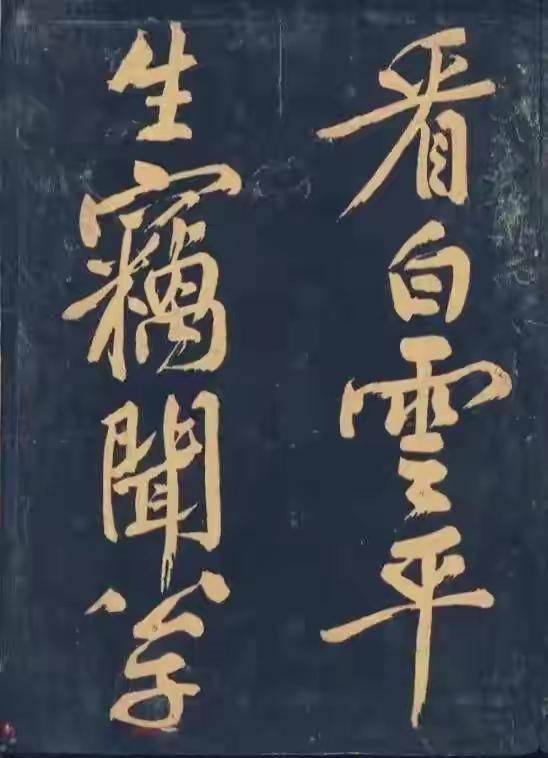 看白雲平
生竊聞